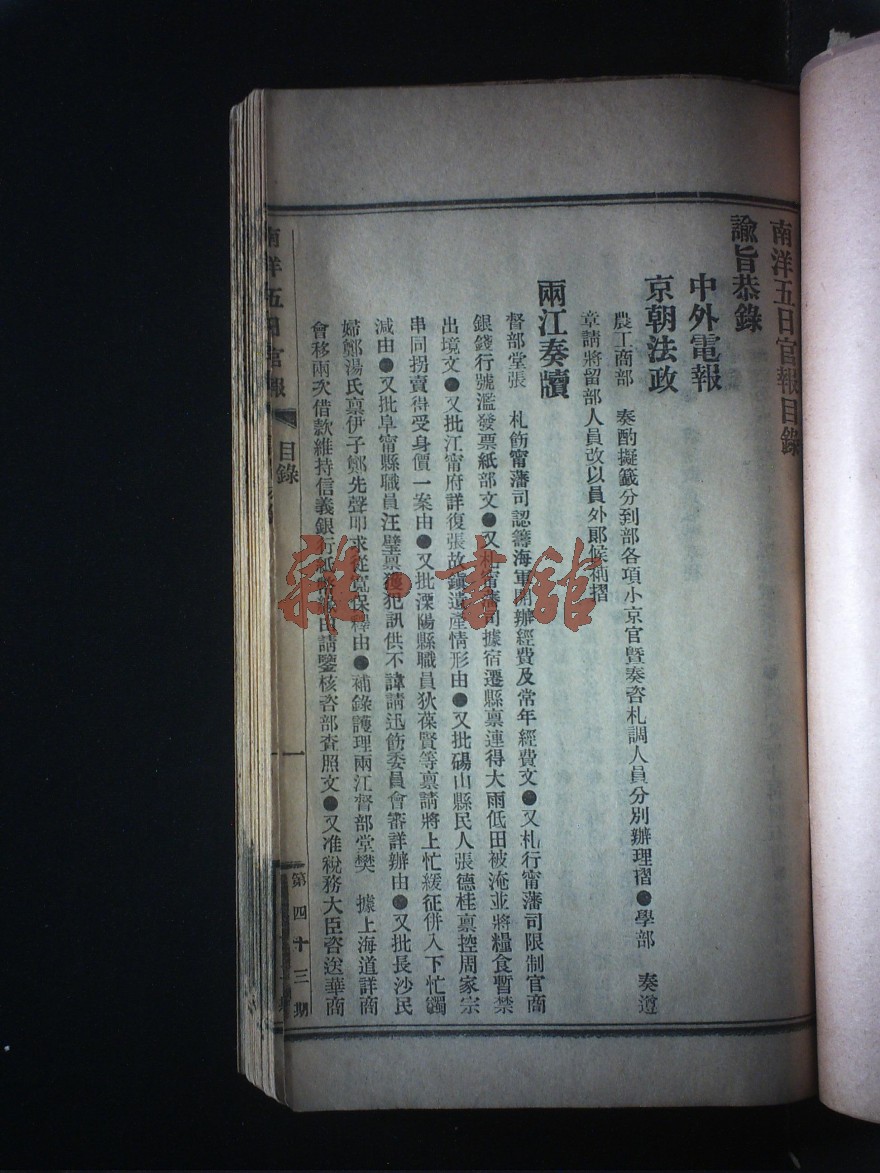 南洋五日官報目錄
諭旨恭錄
中外電報
京朝法政
農工商部　奏酌擬籤分到部各項小京官暨奏咨札調人員分別辦理摺●學部　奏遵
章請將留部人員改以員外郎候補摺
兩江奏牘
督部堂張　札飭甯藩司認籌海軍開辦經費及常年經費文●又札行甯藩司限制官商
銀錢行號濫發票紙部文●又札甯藩司據宿遷縣禀連得大雨低田被淹並將糧食暫禁
出境文●又批江甯府詳復張故鎮遺產情形由●又批碭山縣民人張德桂禀控周家宗
串同拐賣得受身價一案由●又批溧陽縣職員狄葆賢等禀請將上忙緩征併入下忙蠲
減由●又批阜甯縣職員汪璧禀獲犯訊供不諱請迅飭委員會審詳辦由●又批長沙民
婦鄭湯氏禀伊子鄭先聲叩求從寬保釋由●補錄護理兩江督部堂樊　據上海道詳商
會移兩次借款維持信義銀行紙幣緣由請鑒核咨部查照文●又准稅務大臣咨送華商
南洋五日官報
目錄
一
第四十三期
雜·書館